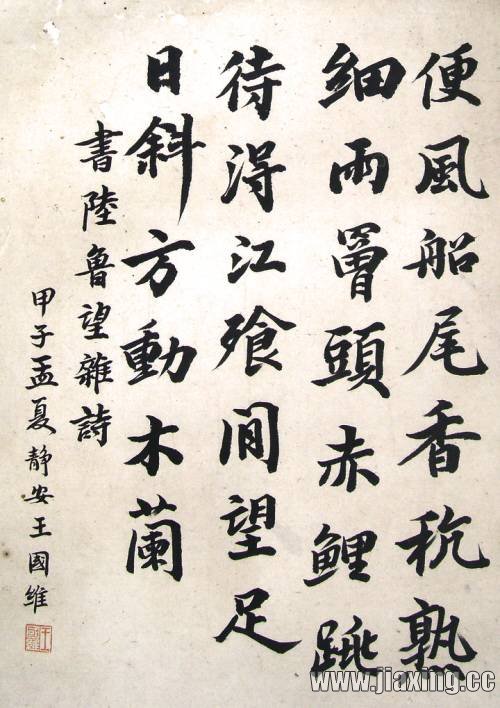 便風船尾香秔熟
細雨罾頭赤鯉跳
待得江飱閒望足
日斜方動木蘭
書陸魯望雜詩
甲子孟夏靜安王國維
www.jiaxing.cc